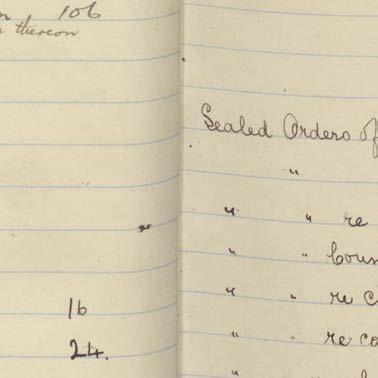 106
thereon
16
24.
Sealed Orders of
"
" " re
" " Coun
" " re c
" " re co
"